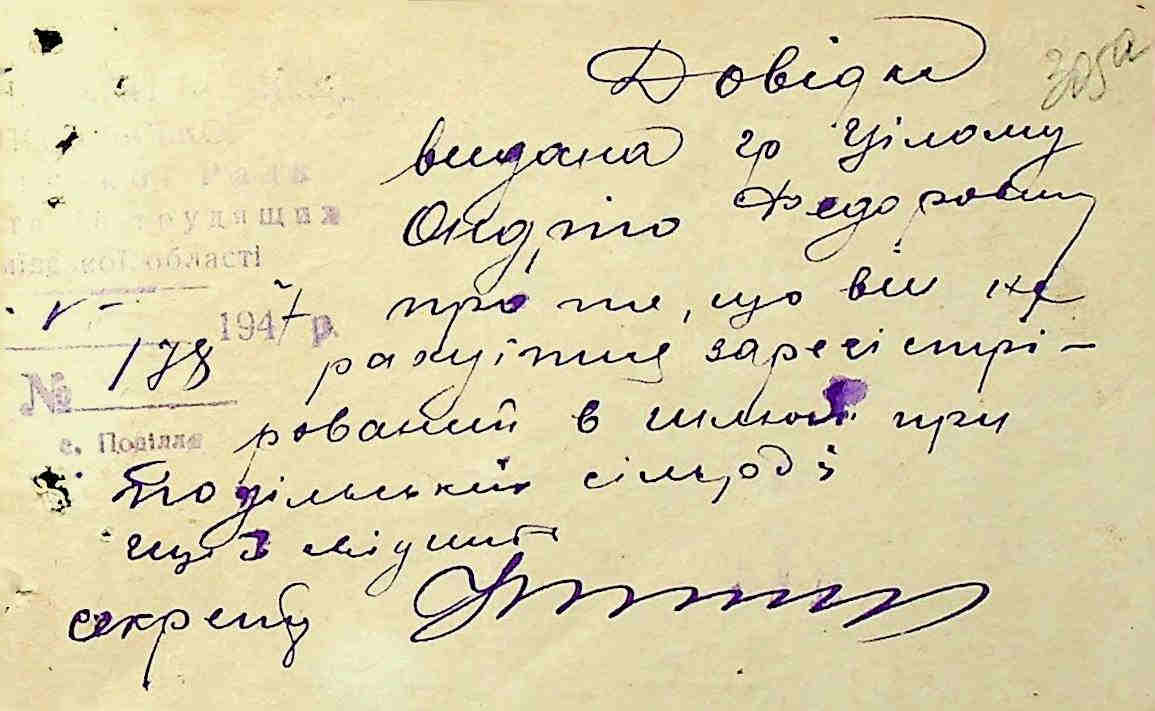 305а
Довідка
видана гр Цілому
Онд Федоровичу
про те, що він не
рахується зарегістрі-
рований в шлюбі при
Подільській сільраді
що й свідчить
секретар
Ради
трудящих
області
V 1947 р.
№ 178
с. Поділля